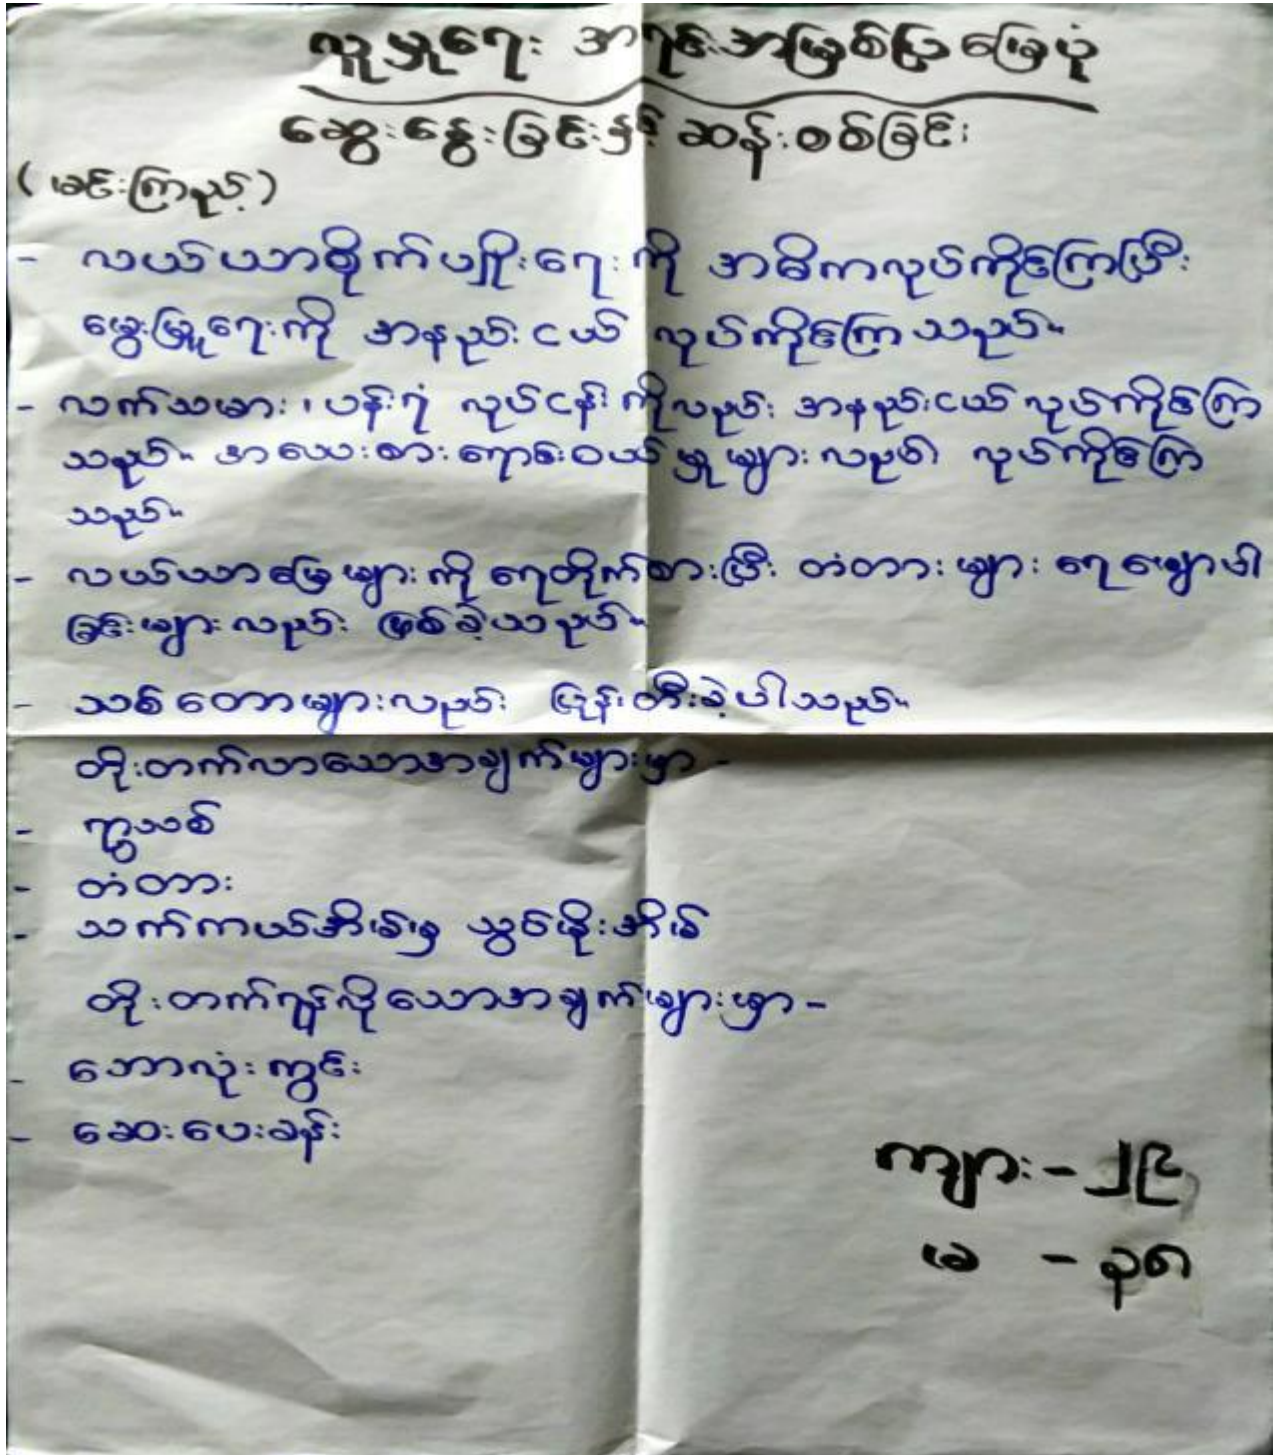 လူမှုရေး အရင်းအမြစ်ပြ မြေပုံ
ဆွေးနွေးခြင်းနှင့် ဆန်းစစ်ခြင်း
(မင်းကြည့်)
- လယ်ယာစိုက်ပျိုးရေးကို အဓိကလုပ်ကိုင်ကြပြီး
မွေးမြူရေးကို အနည်းငယ် လုပ်ကိုင်ကြသည်။
- လက်သမား၊ ပန်းရံ လုပ်ငန်းကိုလည်း အနည်းငယ် လုပ်ကိုင်ကြ
သည်။ အသေးစားရောင်းဝယ်မှုများလည်း လုပ်ကိုင်ကြ
သည်။
- လယ်ယာမြေများကို ရေတိုက်စားပြီး တံတားများ ရေမျောပါ
ခြင်းများလည်း ဖြစ်ခဲ့သည်။
- သစ်တောများလည်း ပြုန်းတီးခဲ့ပါသည်။
တိုးတက်လာသောအချက်များမှာ -
- ရွာသစ်
- တံတား
- သက်ကယ်အိမ်မှ သွပ်မိုးအိမ်
တိုးတက်ရန်လိုသောအချက်များမှာ -
- ဘောလုံးကွင်း
- ဆေးပေးခန်း
ကျား - ၂၉
မ - ၃၈